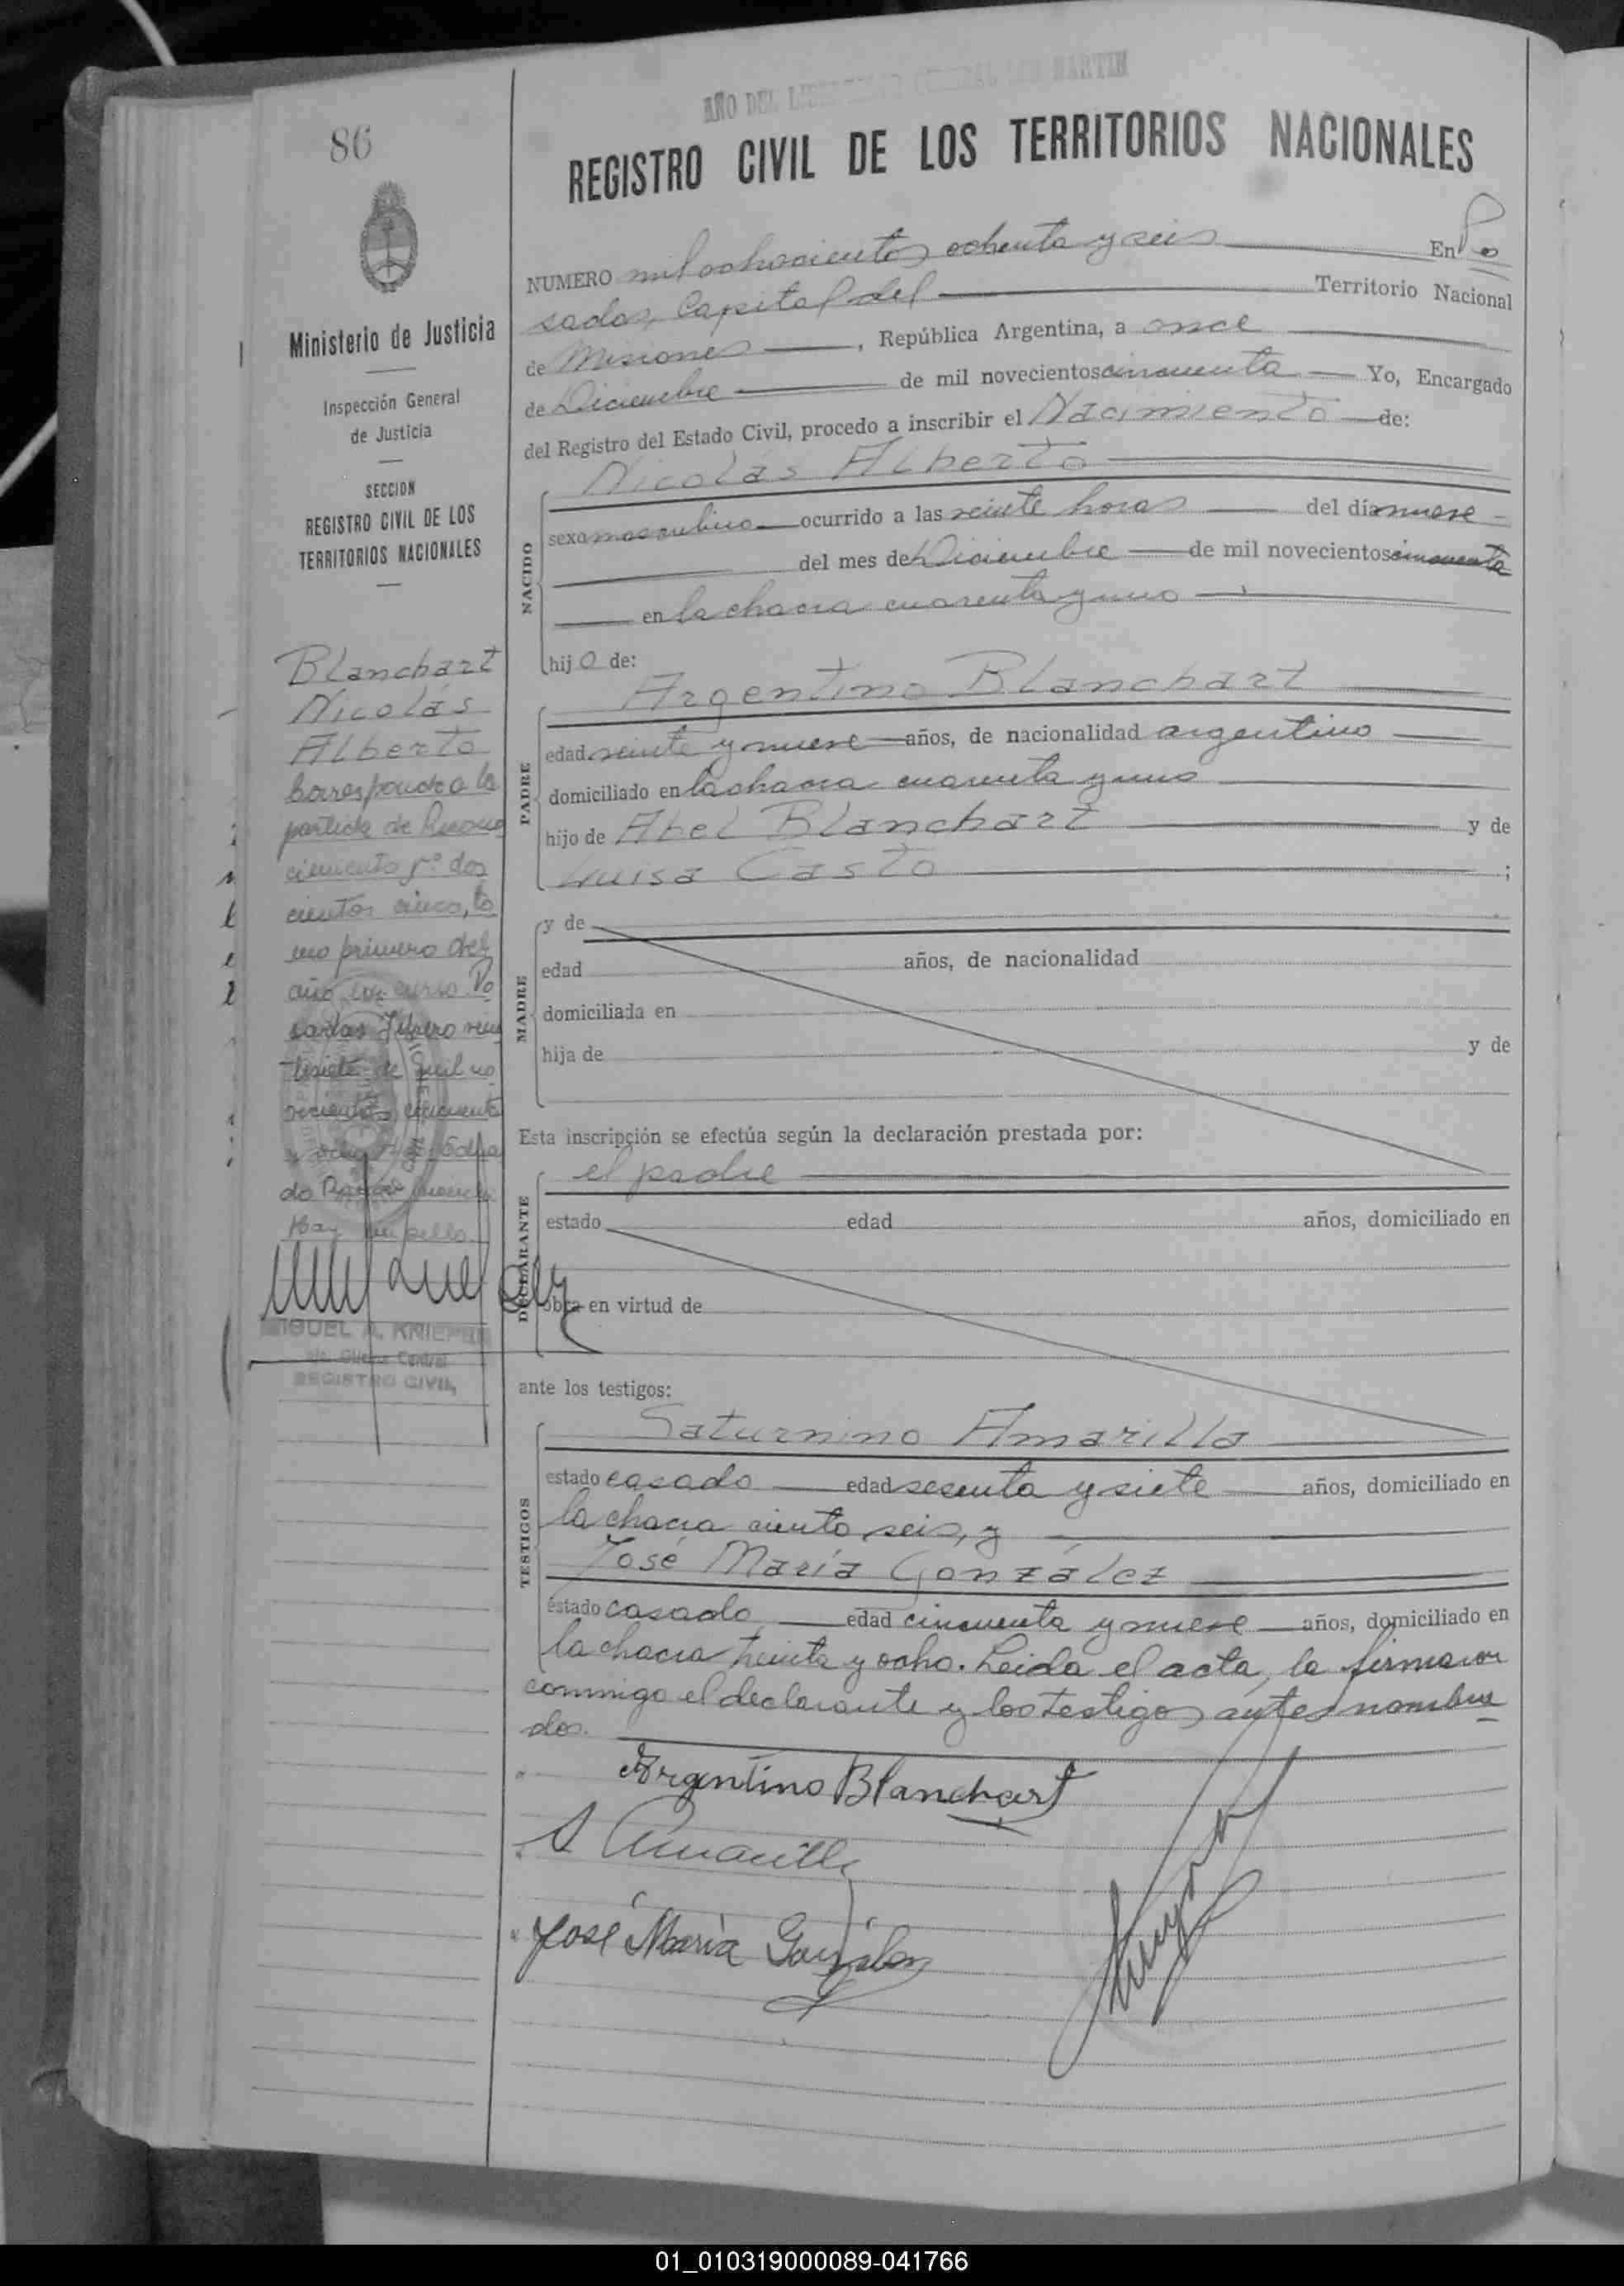 AÑO DEL LIBERTADOR GENERAL SAN MARTIN
86
REGISTRO CIVIL DE LOS TERRITORIOS NACIONALES
Ministerio de Justicia
Inspección General
de Justicia
SECCION
REGISTRO CIVIL DE LOS
TERRITORIOS NACIONALES
Blanchart
Nicolás
Alberto
Corresponde a la
partida de Recono
cimiento nº dos
cientos cinco, to
mo primero del
año en curso. Po
sadas Febrero vein
tisiete de mil no
vecientos cincuenta
do
Hay un sello
MIGUEL A.
Oficina Central
REGISTRO CIVIL
NUMERO mil ochocientos ochenta y seis En Po
sadas, Capital del Territorio Nacional
de Misiones, República Argentina, a once
de Diciembre de mil novecientos cincuenta Yo, Encargado
del Registro del Estado Civil, procedo a inscribir el Nacimiento de:
Nicolás Alberto
NACIDO
sexo masculino ocurrido a las veinte horas del día nueve
del mes de Diciembre de mil novecientos cincuenta
en la chacra cuarenta y uno
hijo de:
Argentino Blanchart
PADRE
edad veinte y nueve años, de nacionalidad argentino
domiciliado en la chacra cuarenta y uno
hijo de Abel Blanchart y de
Luisa Casto ;
MADRE
y de
edad años, de nacionalidad
domiciliada en
hija de y de
Esta inscripción se efectúa según la declaración prestada por:
el padre
DECLARANTE
estado edad años, domiciliado en
obra en virtud de
ante los testigos:
Saturnino Amarilla
TESTIGOS
estado casado edad sesenta y siete años, domiciliado en
la chacra ciento seis, y
José María González
estado casado edad cincuenta y nueve años, domiciliado en
la chacra treinta y ocho. Leida el acta, la firmaron
conmigo el declarante y los testigos antes nombra
dos.
Argentino Blanchart
S Amarilla
José María González
01_010319000089-041766